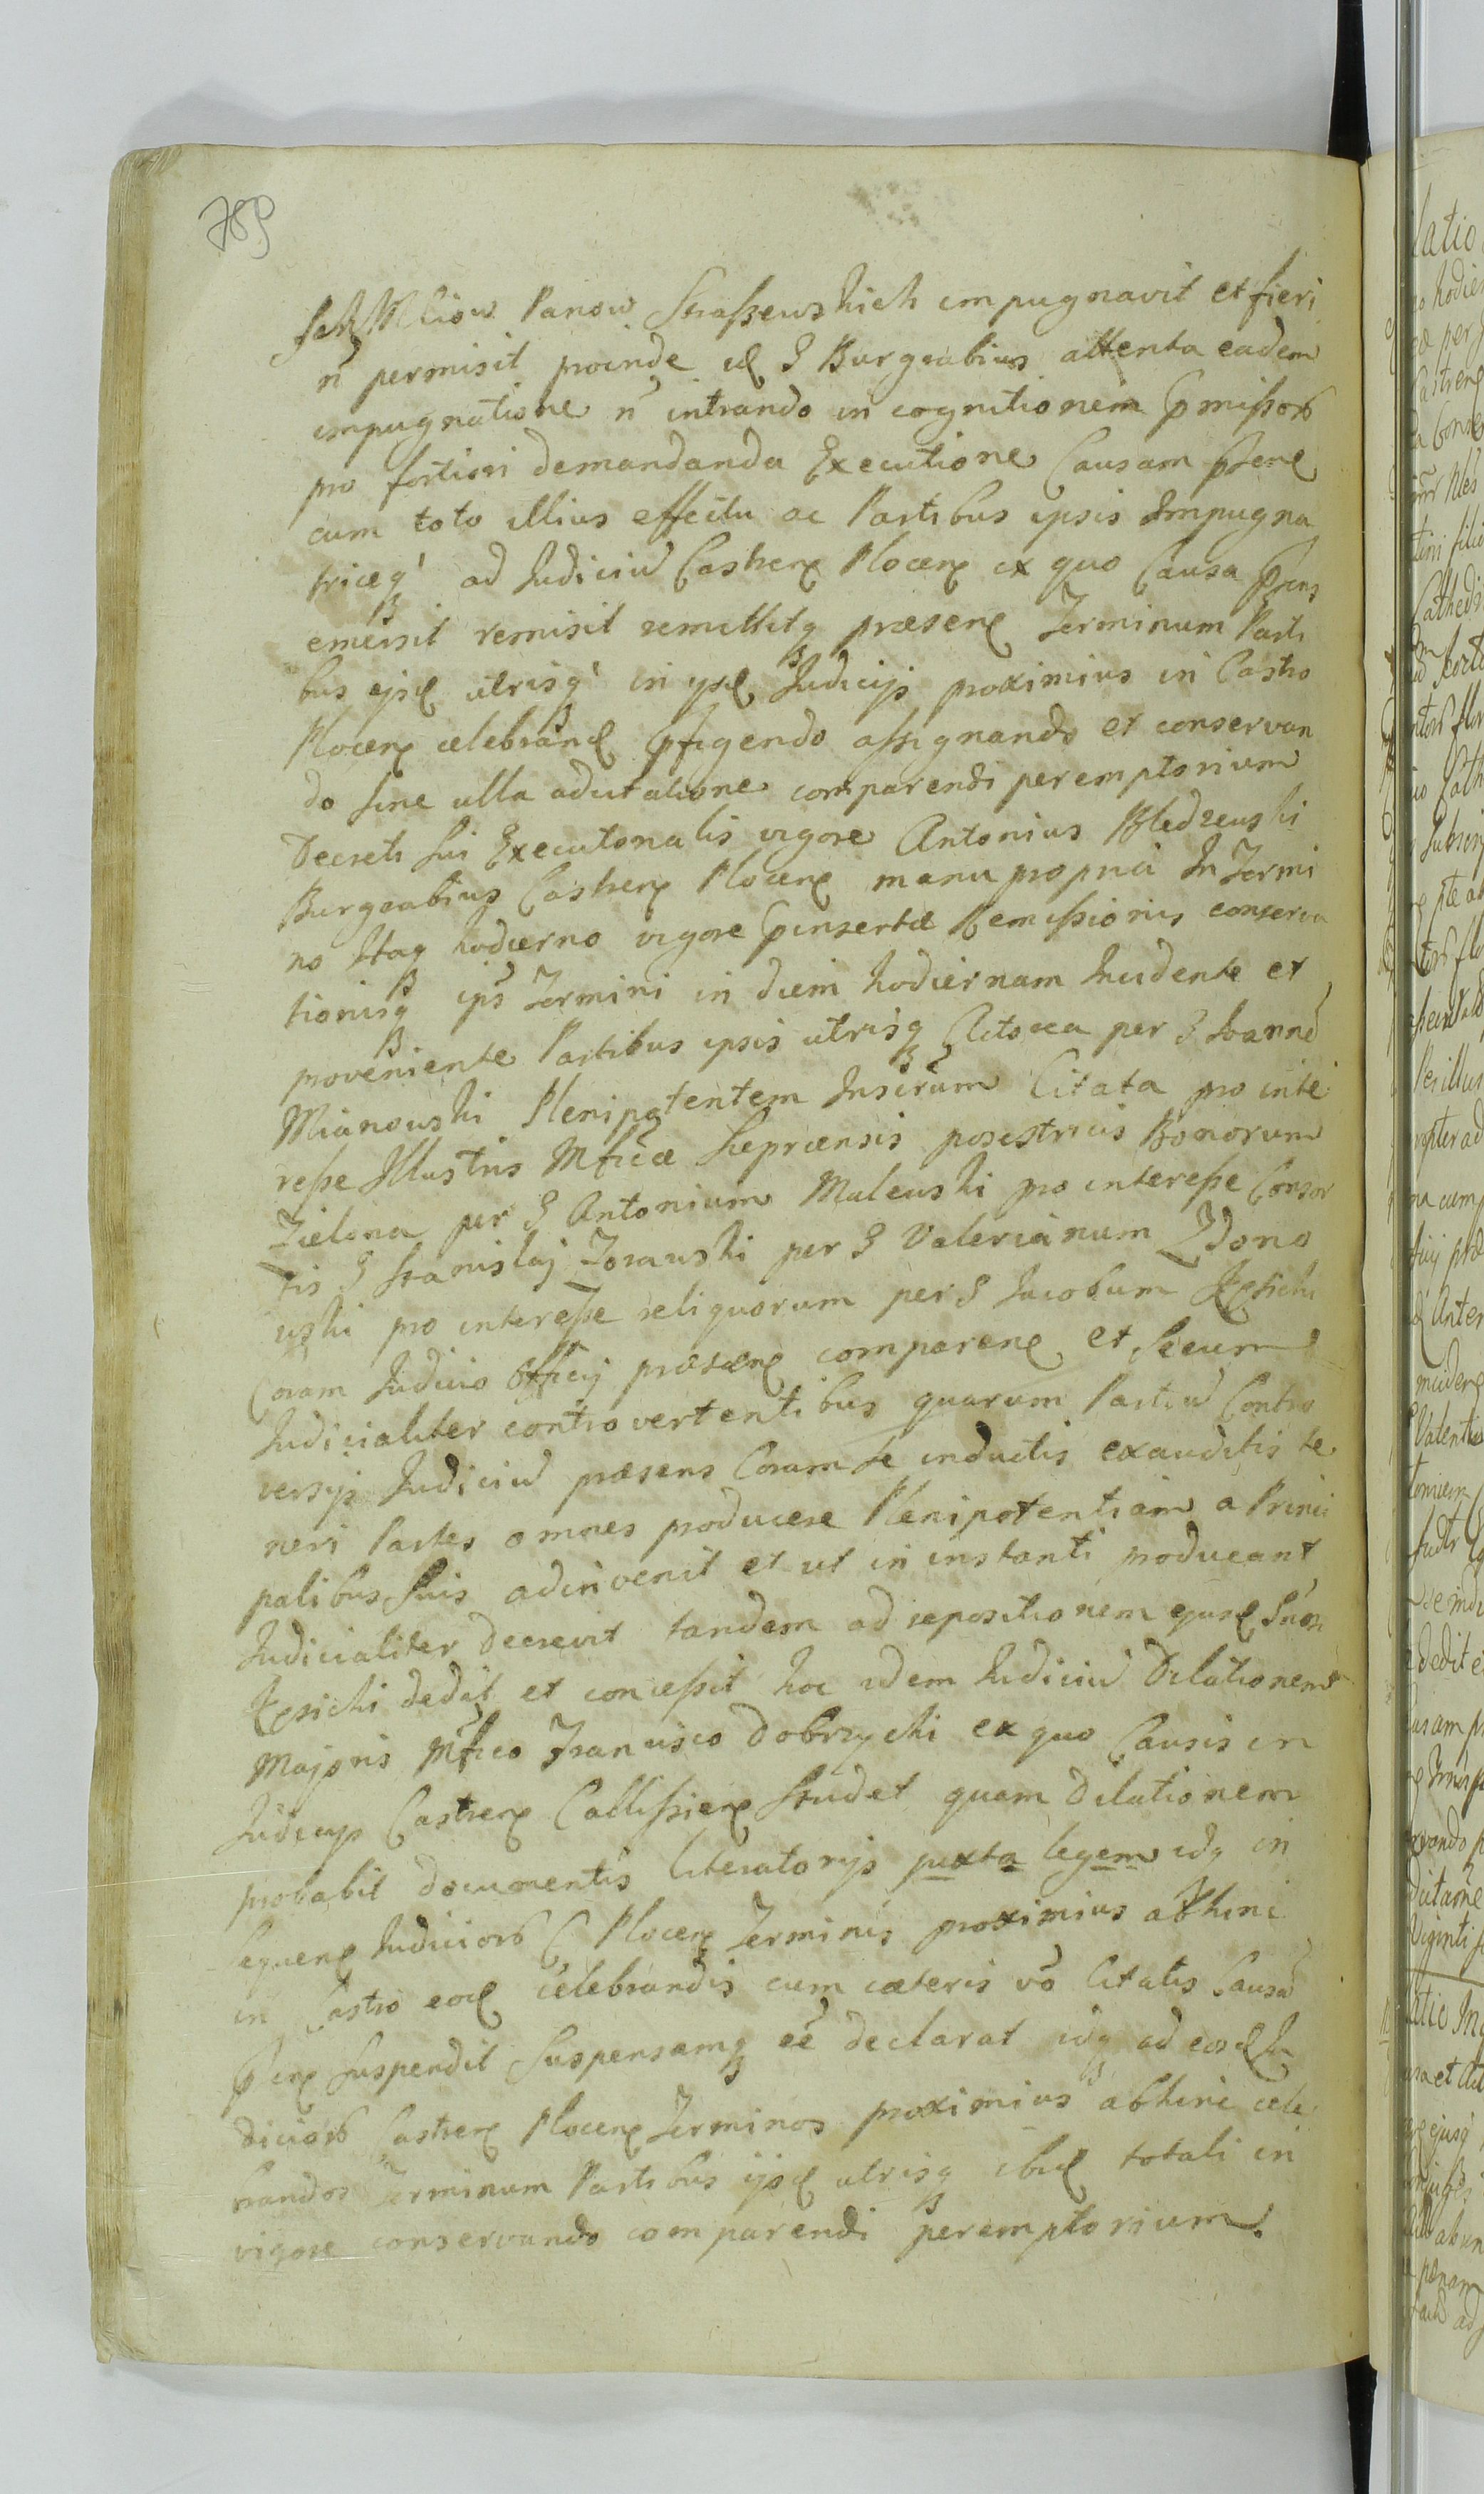 789
Ich Mciow Panow Staszewskich impugnavit et fieri
n permisit proinde id G Burgrabius attenta eadem
impugnatione n intrando in cognitionem pmissor
pro fortiori demandanda Executione Causam psene
cum toto illius effectu ac Partibus ipsis Impugna
triceq ad Judiciu Castren Plocen ex quo Causa psens
emersit remisit remittitq præsen Terminum Parti
bus ejsd utrisq in ysd Judicijs proximius in Castro
Plocen celebrand pfigendo assignando et conservan
do sine ulla adcitatione comparendi peremptorium
Decreti sui Executorialis vigore Antonius Bledzewski
Burgrabius Castren Plocen manu propria In Termi
no Itaq hodierno vigore pinsertæ Remissionis conserva
tionisq ips Termini in diem hodiernam Incidente et
proveniente Partibus ipsis utrisq Actorea per G Joanne
Mianowski Plenipotentem Inscrum Citata pro inte
resse Illustris Mficæ Sieprcensis posestricis Bonorum
Zielona per G Antonium Malewski pro interesse Consor
tis G Stanislaj Zorawski per G Valerianum Zdono
wski pro interesse reliquorum per G Jacobum Kęsicki
Coram Judicio Officij præsen comparen et secum
Judicialiter controvertentibus quarum Partiu Contro
versijs Judiciu præsens Coram se inductis exauditis te
neri Partes omnes producere Plenipotentiam a Princi
palibus suis adinvenit et ut in instanti producant
Judicialiter decrevit tandem ad repositionem ejusd
Kęsicki dedit et concessit hoc idem Judiciu Dilationem
Majoris Mfico Francisco Dobrzycki ex quo Causis in
Judicijs Castren Callissien studet quam Dilationem
probabit documentis literatorijs juxta legem idq in
sequen Judicior C Plocen Terminis proximius abhinc
in Castro eod celebrandis cum cæteris vo Citatis Causa
psen suspendit suspensamq ee declarat idq ad eosd Ju
dicior Castren Plocen Terminos proximius abhinc cele
brandos Terminum Partibus ijsd utrisq ibid totali in
vigore conservando comparendi peremptorium.